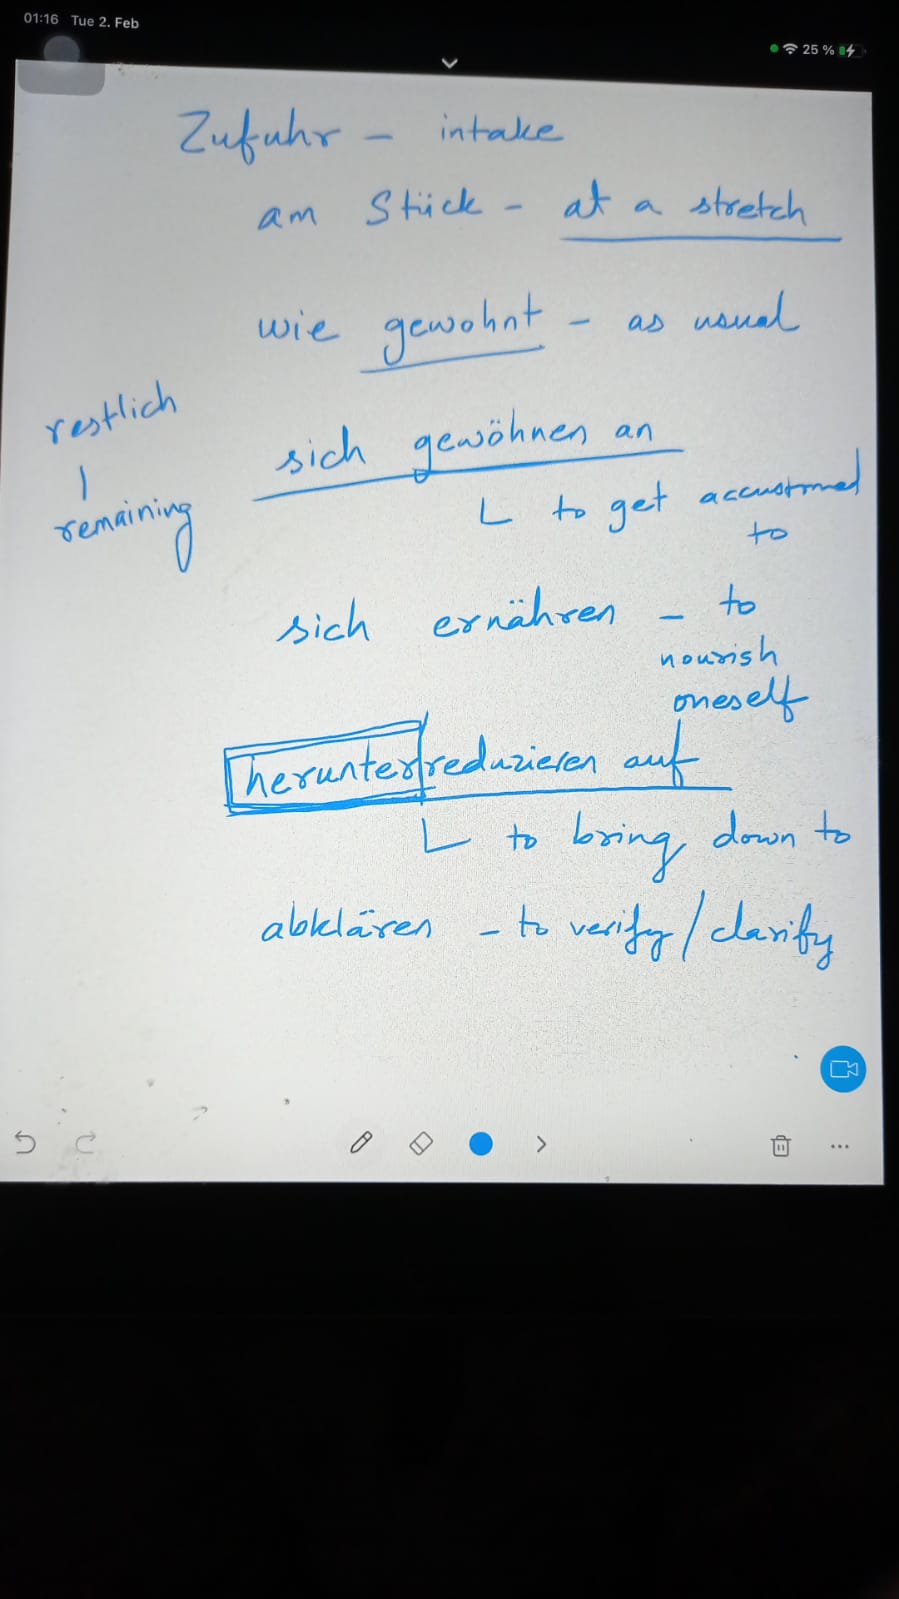 01:16 Tue 2. Feb
25 %
Zufuhr - intake
am Stück - at a stretch
wie gewohnt - as usual
restlich
remaining
sich gewöhnen an
to get accustomed
to
sich ernähren - to
nourish
oneself
herunterreduzieren auf
to bring down to
abklären - to verify/clarify